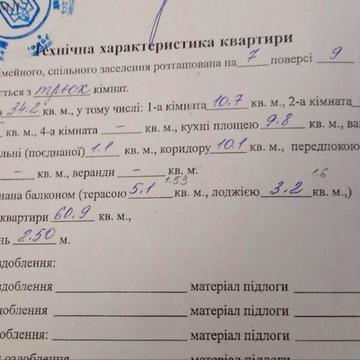 Технічна характеристика квартири
імейного, спільного заселення розташована на 7 поверсі 9
ється з трьох кімнат.
34.2 кв. м, у тому числі: 1-а кімната 10.7 кв. м, 2-а кімната
кв. м., 4-а кімната – кв. м., кухні площею 9.8 кв. м., ва
льні (поєднаної) 1.1 кв. м., коридору 10.1 кв. м., передпокою
– кв. м., веранди – кв. м.
1.53 1.6
нана балконом (терасою 5.1 кв. м., лоджією 3.2 кв. м.,)
квартири 60.9 кв. м.,
нь 2.50 м.
здоблення:
здоблення матеріал підлоги
доблення матеріал підлоги
доблення: матеріал підлоги
оздоблення матеріал підлоги